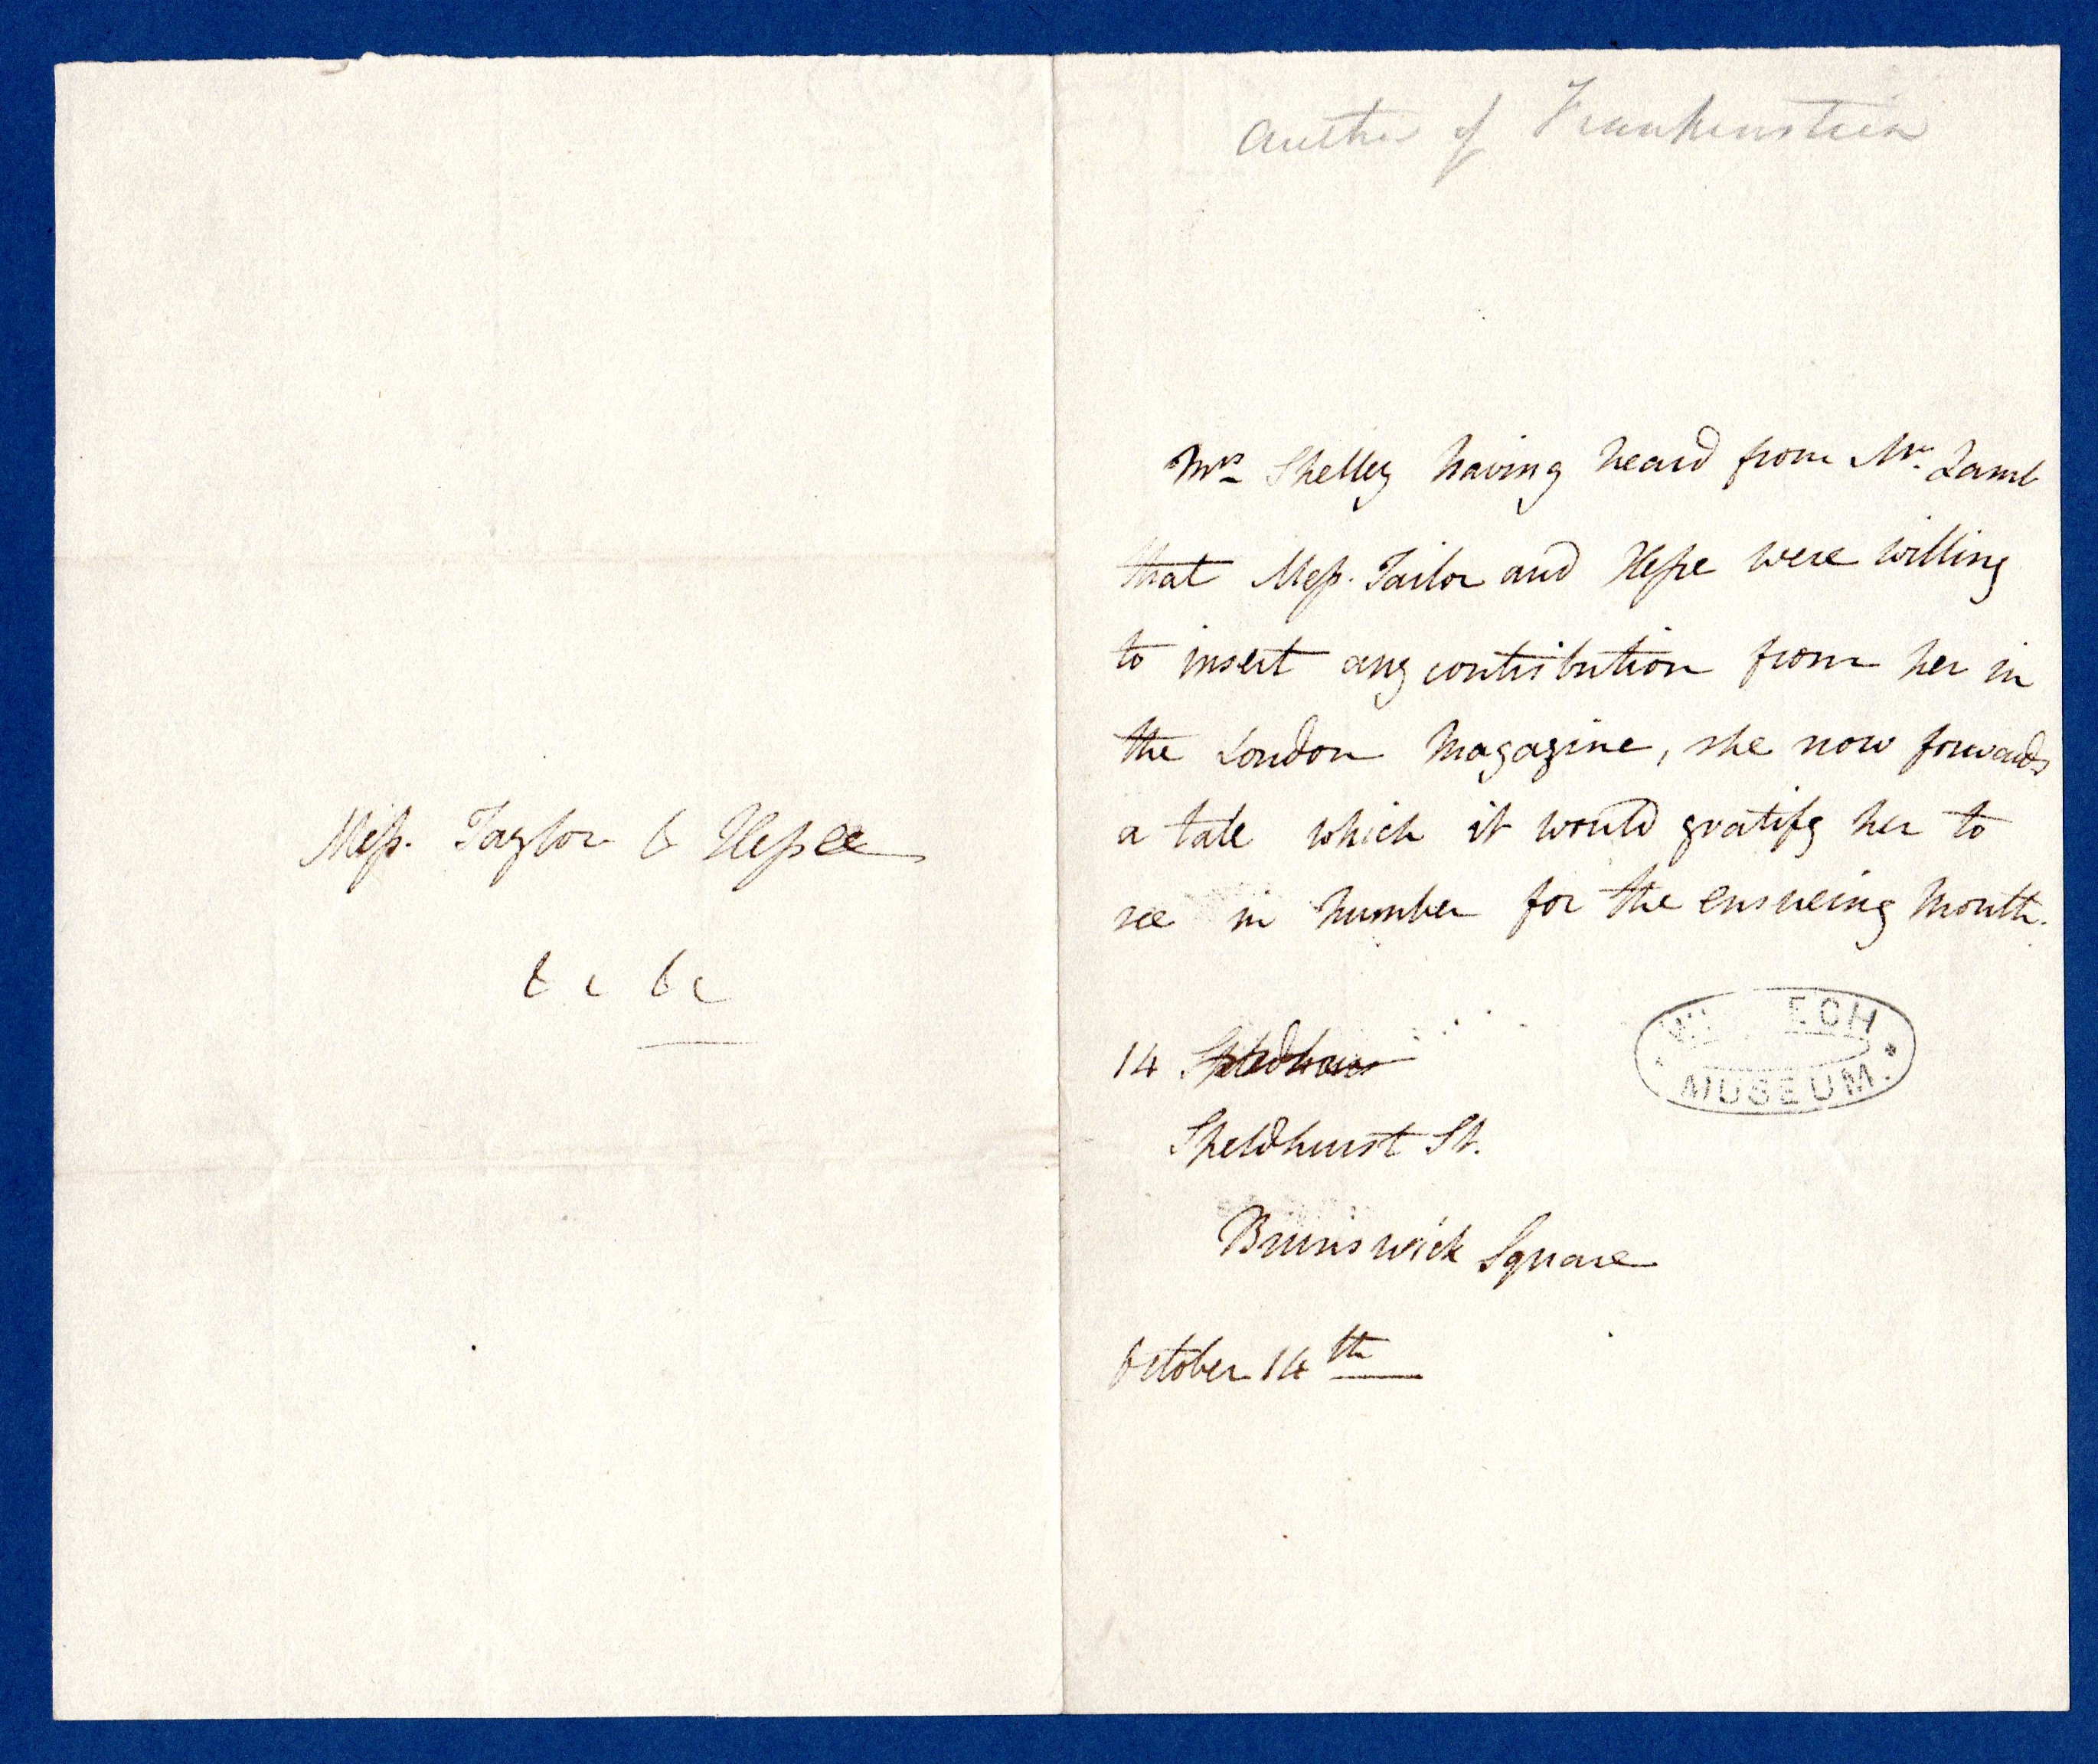 Mess. Taylor & Hessee
&c &c
Author of Frankenstein
Mrs Shelley having heard from Mr. Lamb
that Mess. Tailor and Hesse were willing
to insert any contribution from her in
the London Magazine, she now forwards
a tale which it would gratify her to
see in number for the ensueing month.
14
Speldhurst St.
Brunswick Square
October 14th
ECH
MUSEUM.